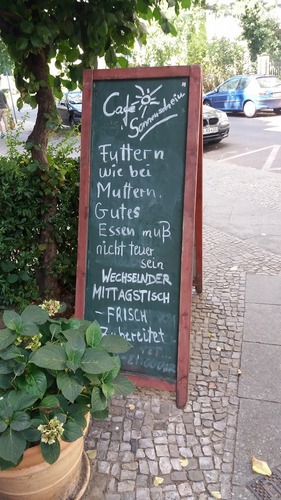 Café
Sonnenschein"
Futtern
wie bei
Muttern.
Gutes
Essen muß
nicht teuer
sein
WECHSELNDER
MITTAGSTISCH
- FRISCH
Zubereitet